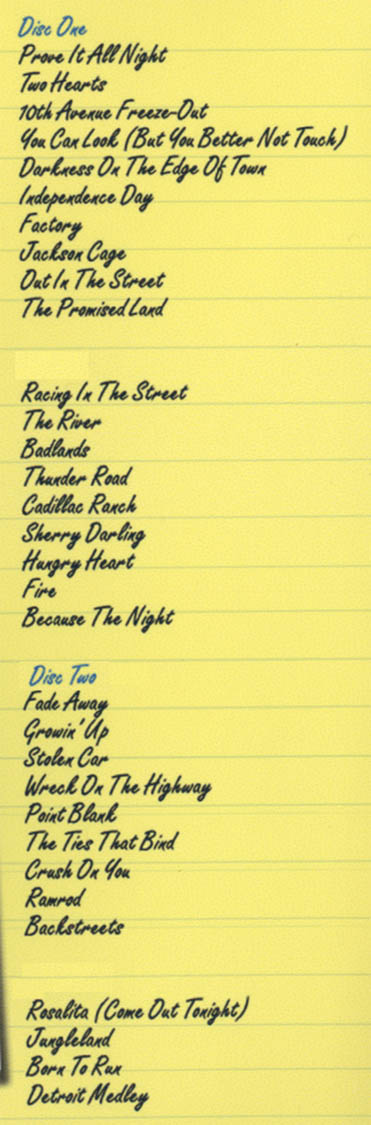 Disc One
Prove It All Night
Two Hearts
10th Avenue Freeze-Out
You Can Look (But You Better Not Touch)
Darkness On The Edge Of Town
Independence Day
Factory
Jackson Cage
Out In The Street
The Promised Land
Racing In The Street
The River
Badlands
Thunder Road
Cadillac Ranch
Sherry Darling
Hungry Heart
Fire
Because The Night
Disc Two
Fade Away
Growin' Up
Stolen Car
Wreck On The Highway
Point Blank
The Ties That Bind
Crush On You
Ramrod
Backstreets
Rosalita (Come Out Tonight)
Jungleland
Born To Run
Detroit Medley